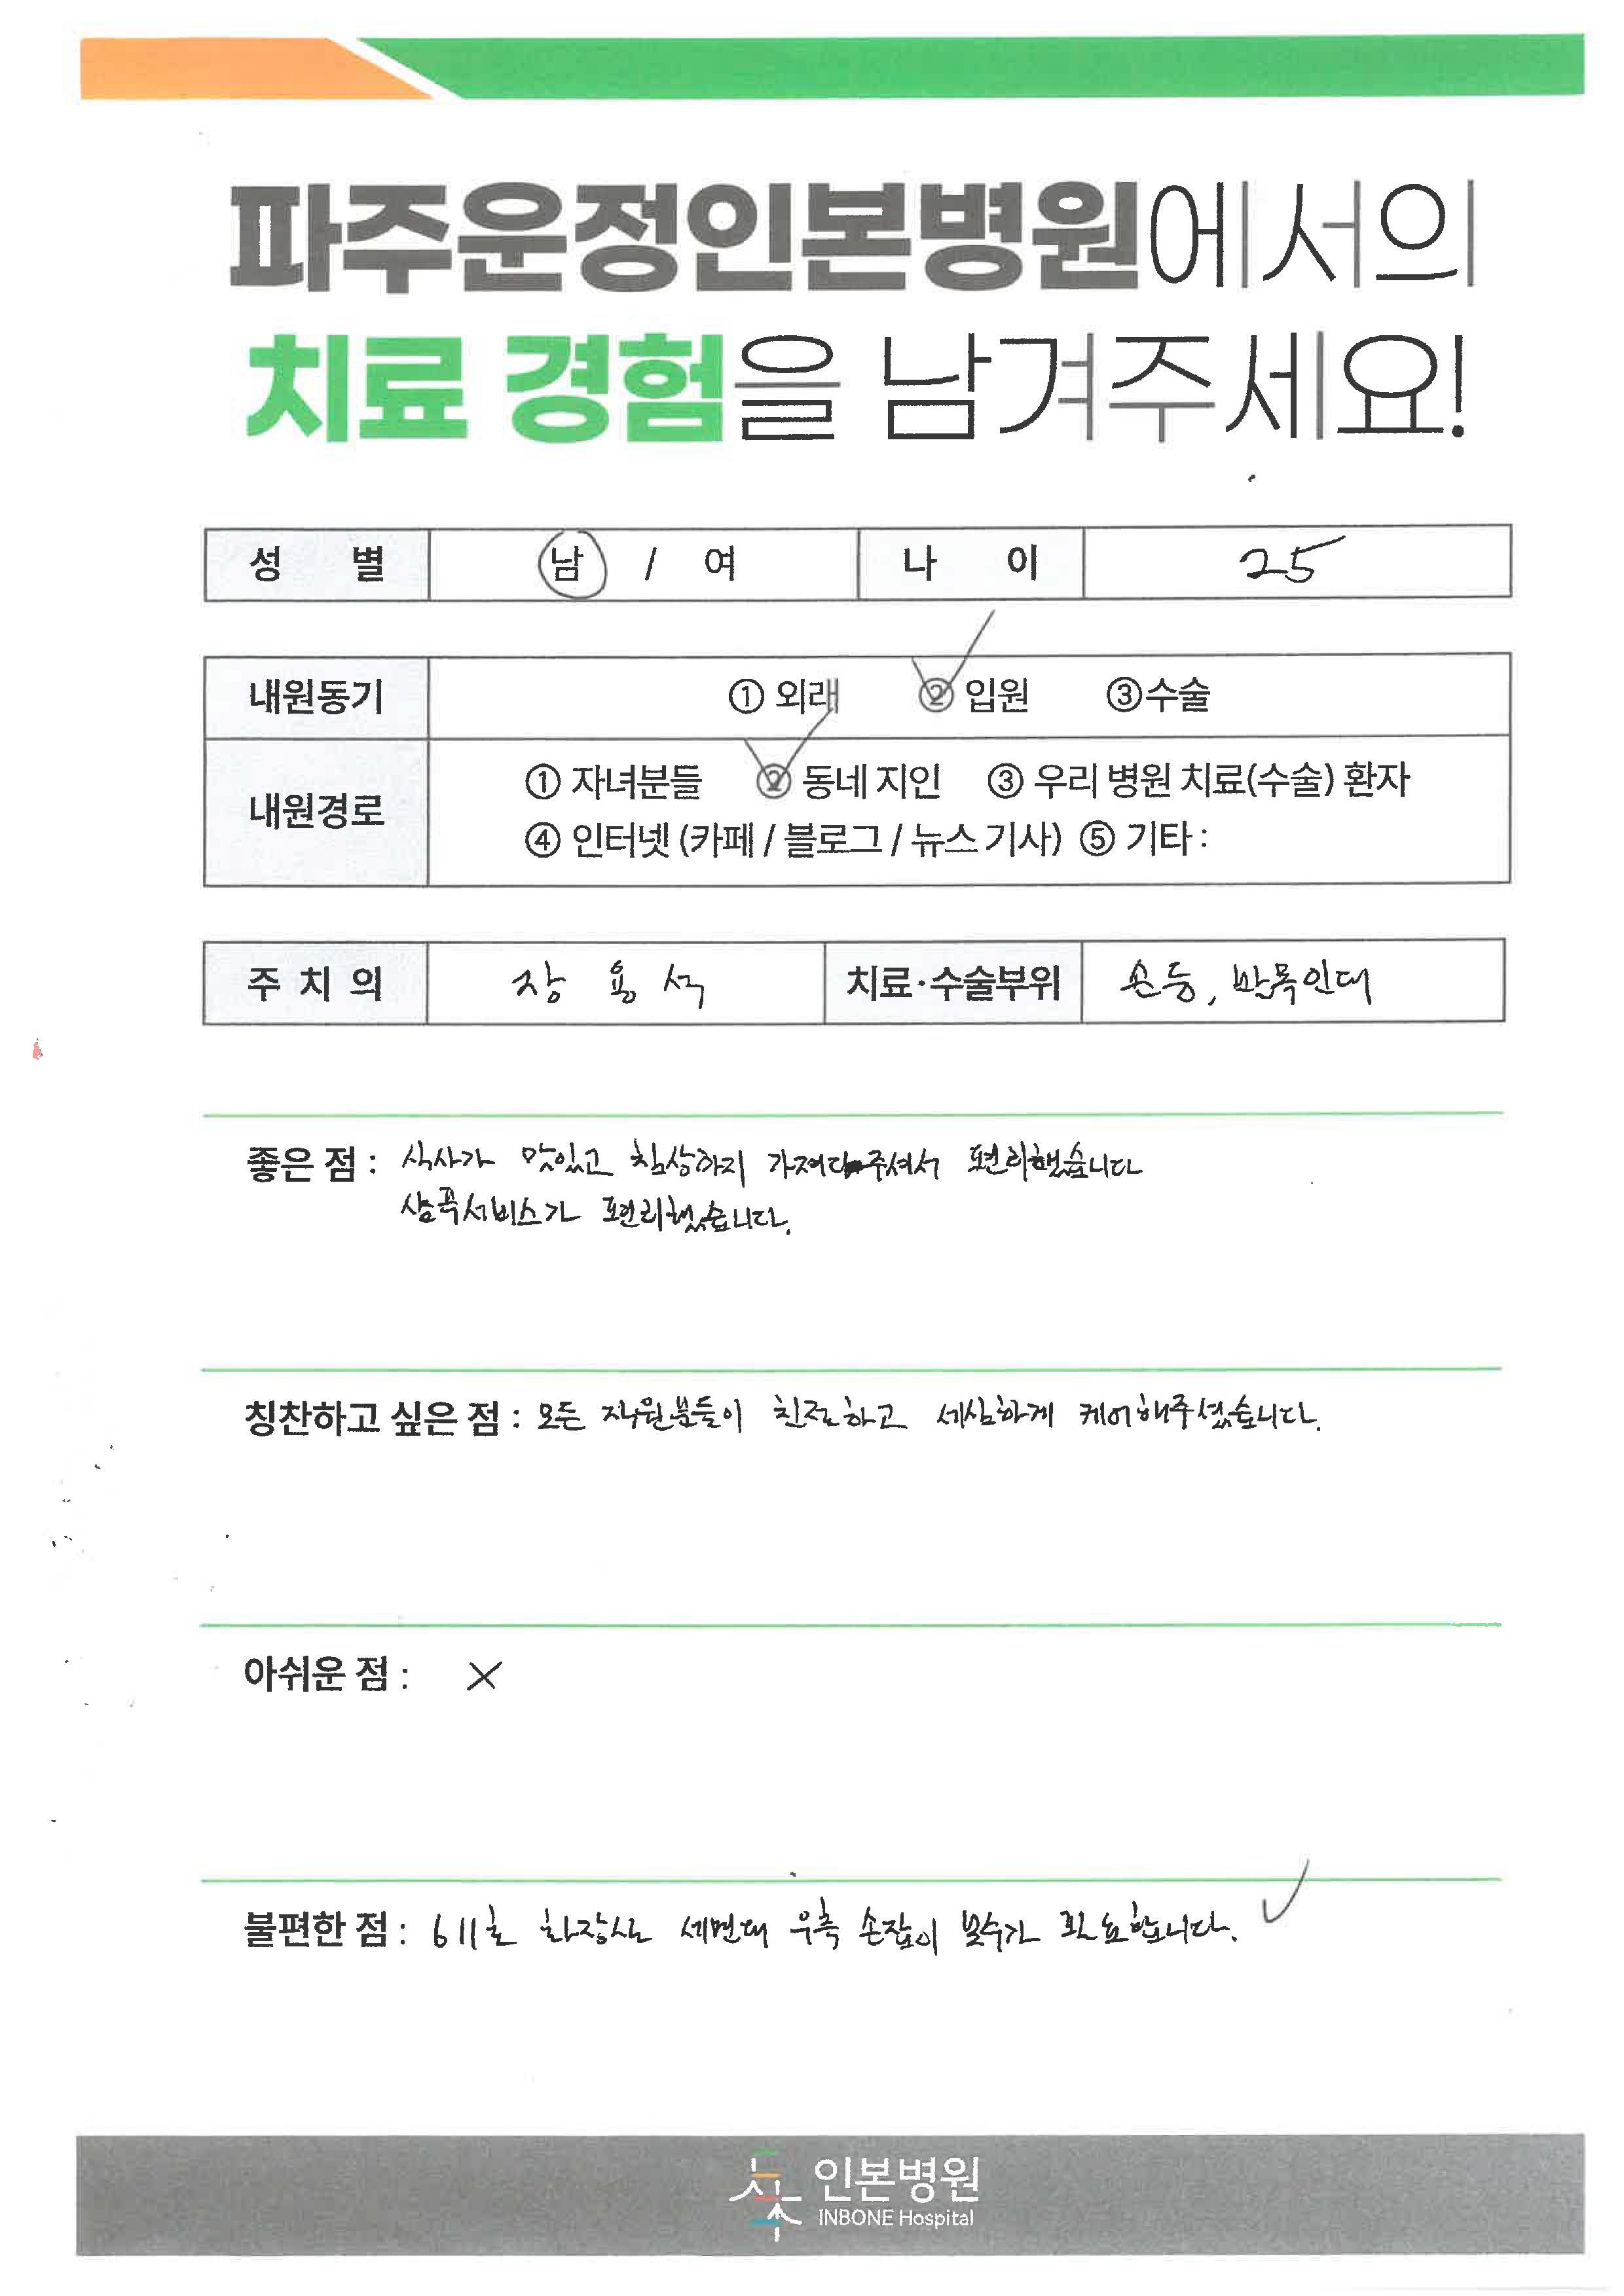 파주운정인본병원에서의
치료 경험을 남겨주세요!
성 별 남 / 여 나 이 25
내원동기 ① 외래 ② 입원 ③수술
내원경로 ① 자녀분들 ② 동네 지인 ③ 우리 병원 치료(수술) 환자
④ 인터넷 (카페 / 블로그 / 뉴스 기사) ⑤ 기타 :
주 치 의 장 용 석 치료·수술부위 손등, 발목인대
좋은 점 : 식사가 맛있고 침상까지 가져다주셔서 편리했습니다
샴푸서비스가 편리했습니다.
칭찬하고 싶은 점 : 모든 직원분들이 친절하고 세심하게 케어해주셨습니다.
아쉬운 점 : X
불편한 점 : 611호 화장실 세면대 우측 손잡이 보수가 필요합니다.
인본병원
INBONE Hospital